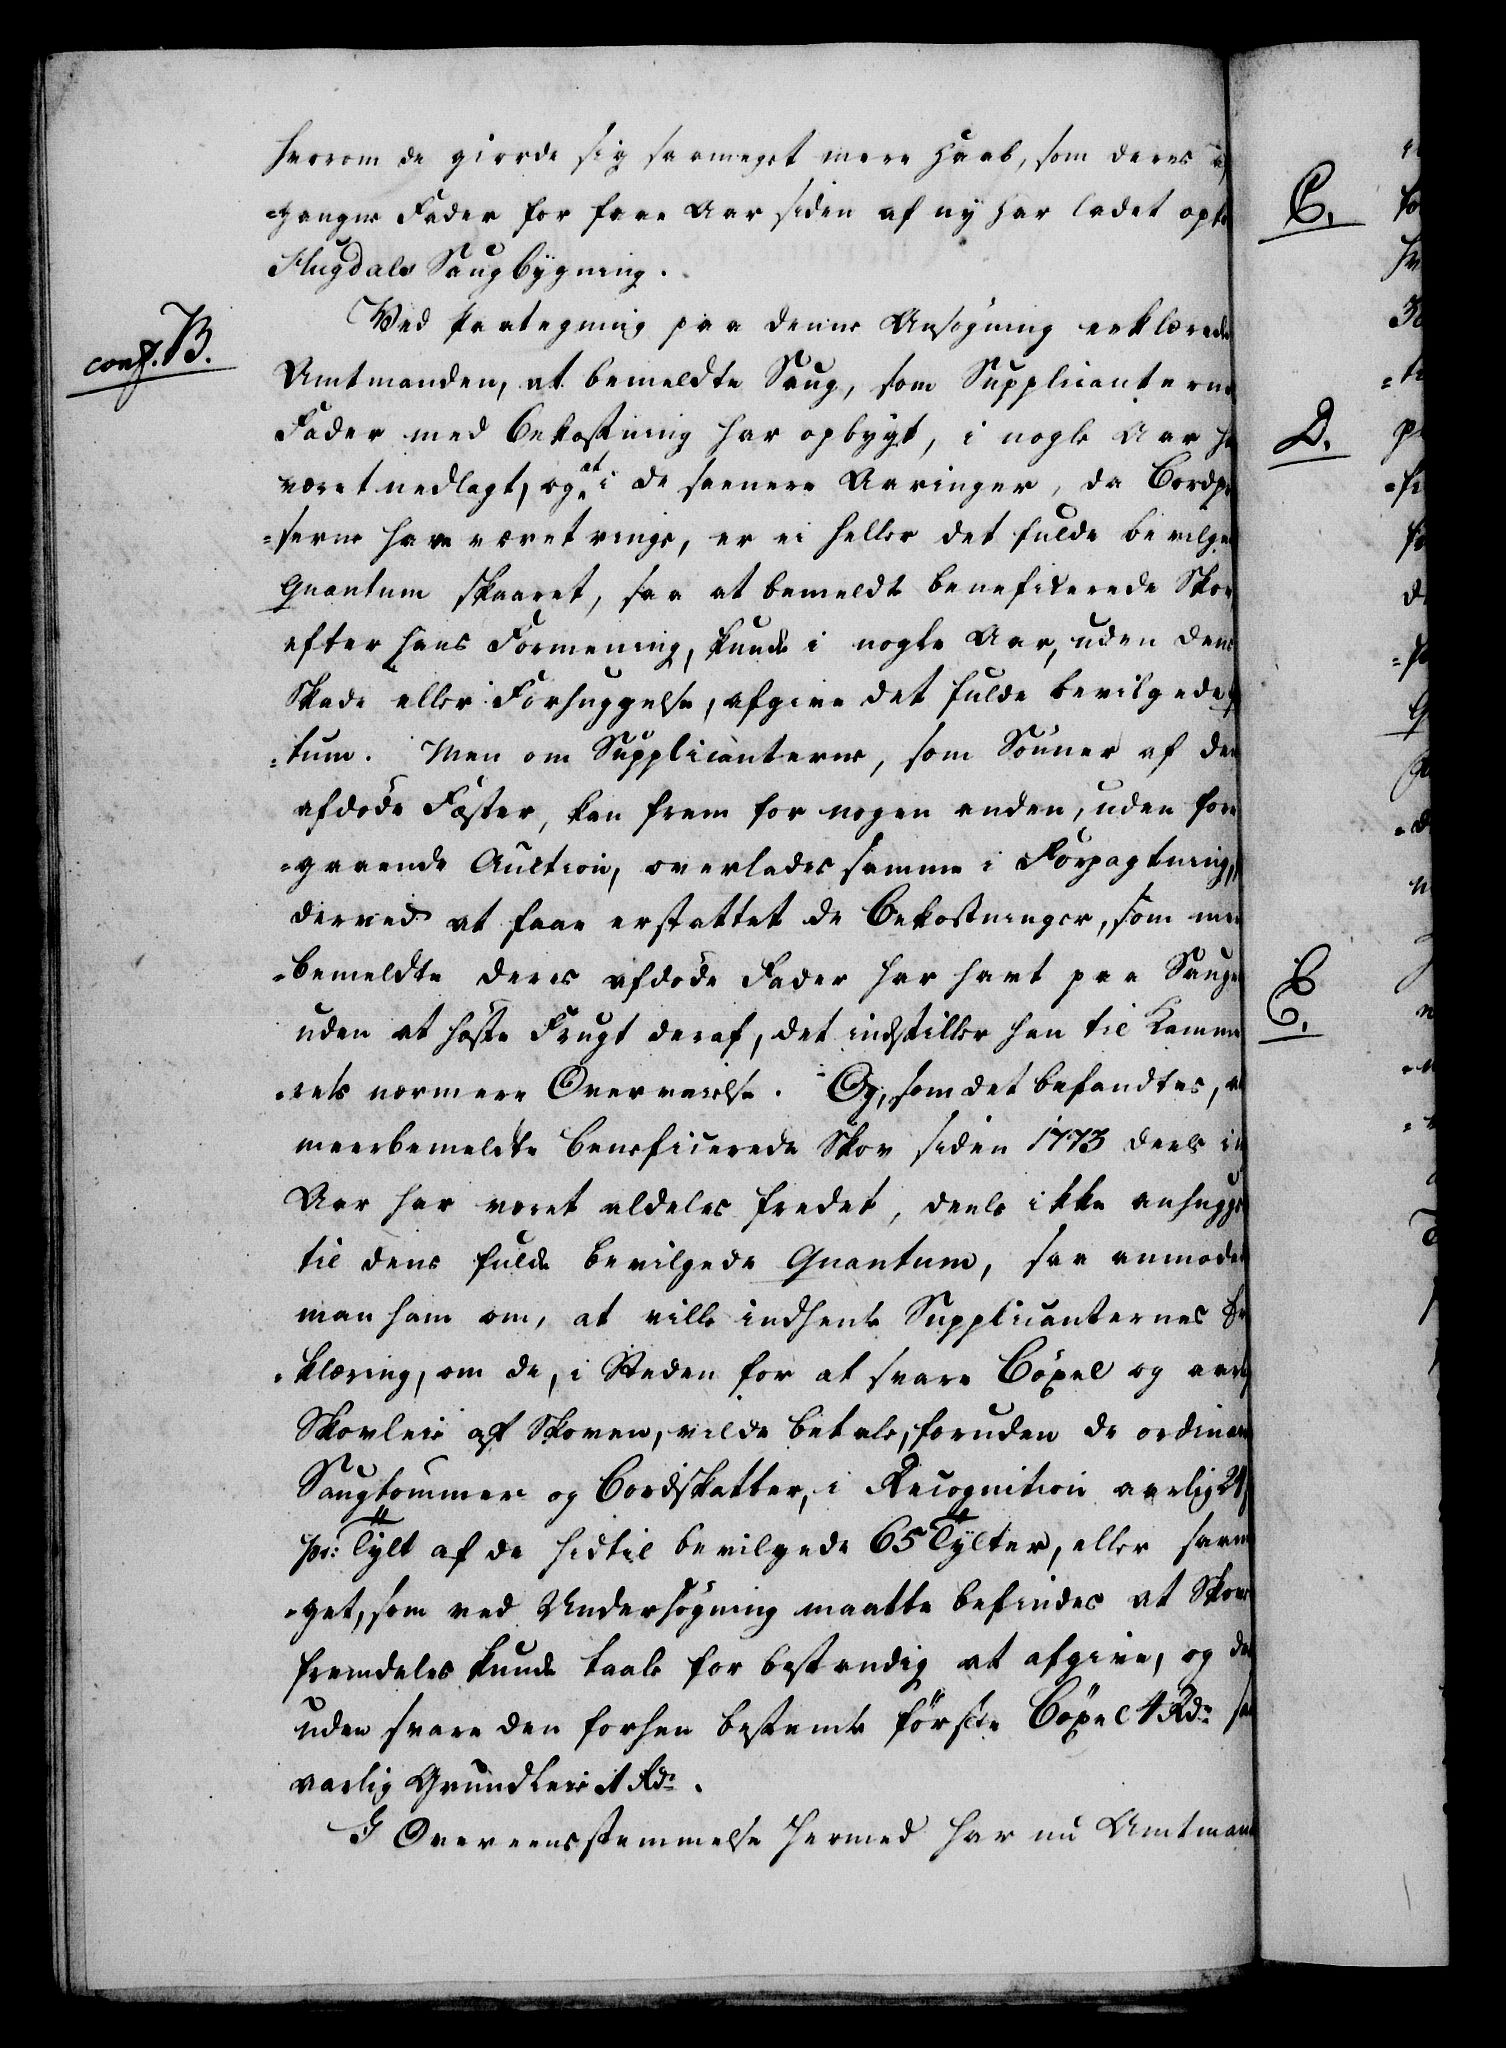 hvorom de giorde sig saameget mere Haab, som deres af
=gangne Fader for faae Aar siden af ny har ladet opte
Flugdals Saugbygning.
conf. B.
Ved Paategning paa denne Ansögning erklærede
Amtmanden, at bemeldte Saug, som Supplicanternes
Fader med Bekostning har opbygt, i nogle Aar ha
været nedlagt, og at i de seenere Aaringer, da Bordpri
=serne have været ringe, er ei heller det fulde bevilgede
Quantum skaaret, saa at bemeldte beneficerede Skov,
efter hans Formening, kunde i nogle Aar, uden dens
Skade eller Forhuggelse, afgive det fulde bevilgede Q
=tum. Men om Supplicanterne, som Sönner af den
afdöde Fæster, kan frem for nogen anden, uden fore
=gaaende Auction, overlades samme i Forpagtning,
derved at faae erstattet de Bekostninger, som meer
=bemeldte deres afdöde Fader har havt paa Saugen
uden at höste Frugt deraf, det indstiller han til Kamme
=rets nærmere Overveielse. Og, som det befandtes, at
meerbemeldte beneficerede Skov siden 1773 deels i
Aar har været aldeles fredet, deels ikke anhugget
til dens fulde bevilgede Quantum, saa anmodede
man ham om, at ville indhente Supplicanternes Er
=klæring, om de, i Steden for at svare Böxel og aarlig
Skovleie af Skoven, vilde betale, foruden de ordinaire
Saugtømmer og Bordskatter, i Recognition aarlig 24
pr: Tylt af de hidtil bevilgede 65 Tylter, eller saame
=get, som ved Undersögning maatte befindes at Skoven
fremdeles kunde taale for bestandig at afgive, og des
uden svare den forhen bestemte förste Böxel 4 Rdr sa
aarlig Grundleie 1 Rdr.
I Overeensstemmelse hermed har nu Amtmand
C.
D.
E.